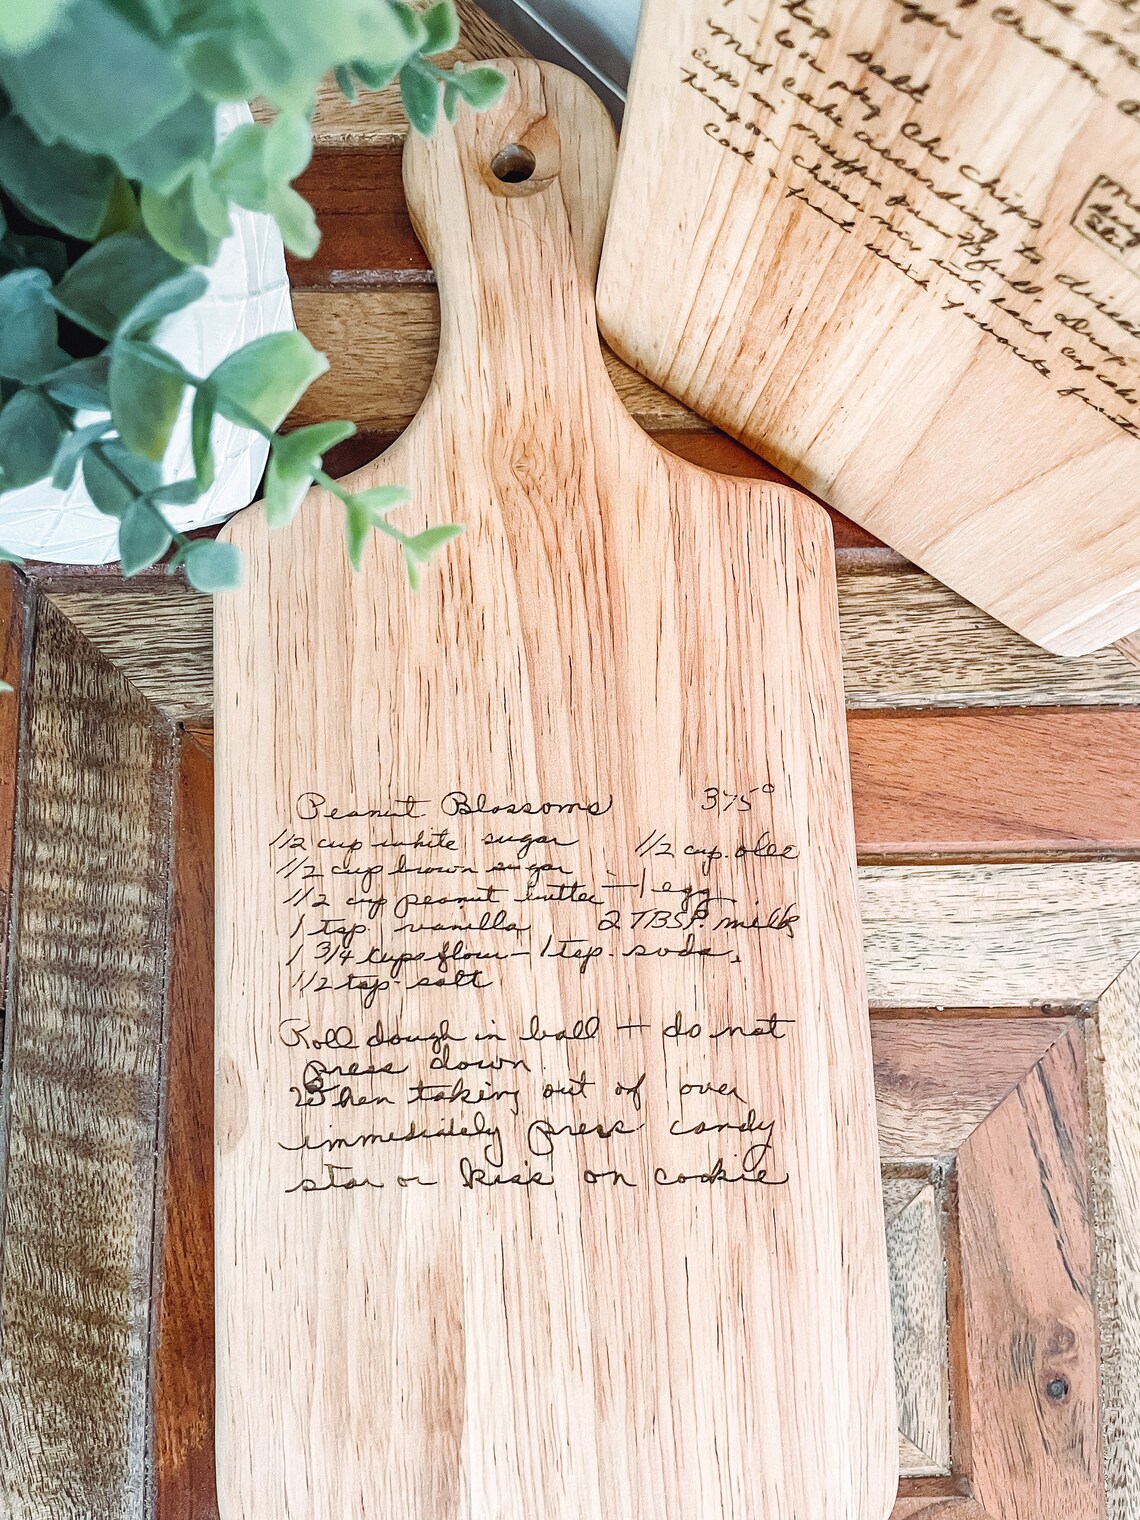 Peanut Blossoms 375°
1/2 cup white sugar 1/2 cup oleo
1/2 cup brown sugar
1/2 cup peanut butter — 1 egg
1 tsp vanilla 2 TBSP. milk
1 3/4 cups flour — 1 tsp. soda,
1/2 tsp. salt
Roll dough in ball — do not
press down
When taking out of over
immediately press candy
star or kiss on cookie
sugar
tsp salt
6 oz pkg Cho Chips
Mix cake according to direc
cups in muffin pans full. Drop
teaspoon cheese mix into each cupcake
Cool & frost with favorite frost